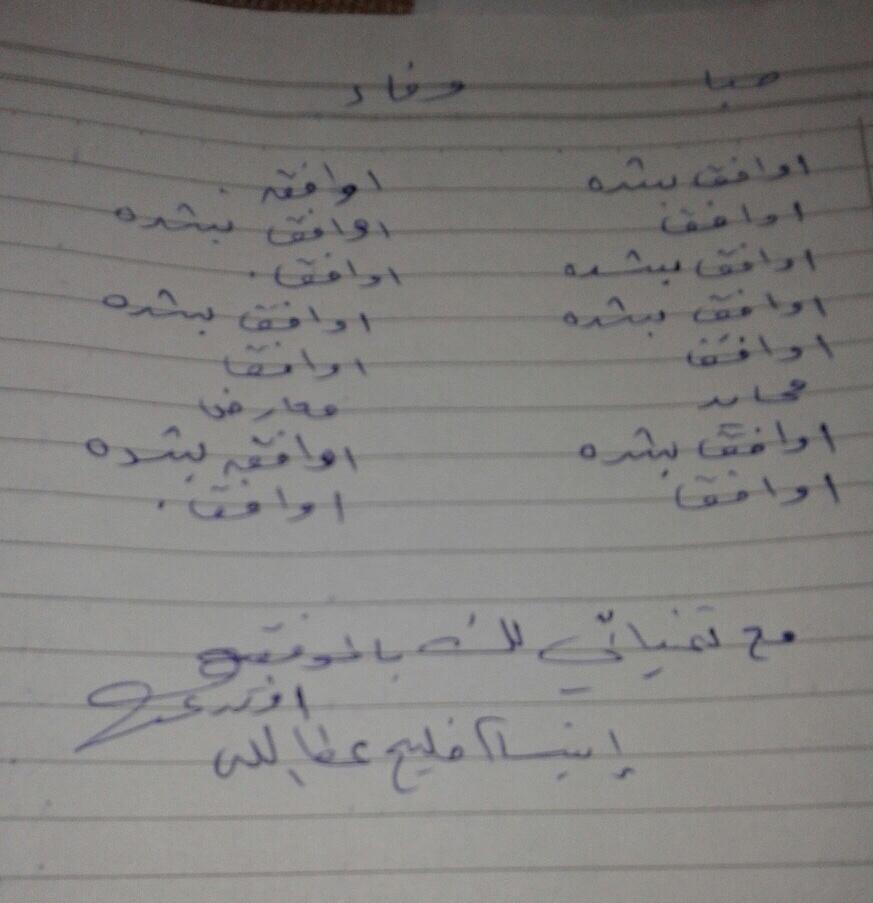 صبا وفاء
اوافق بشده اوافق.
اوافق اوافق بشده
اوافق بشده اوافق.
اوافق بشده اوافق بشده
اوافق اوافق
محايد معارض
اوافق بشده اوافق بشده
اوافق اوافق.
مع تمنياتي لك بالموفقيه
إبتسام فليح عطالله